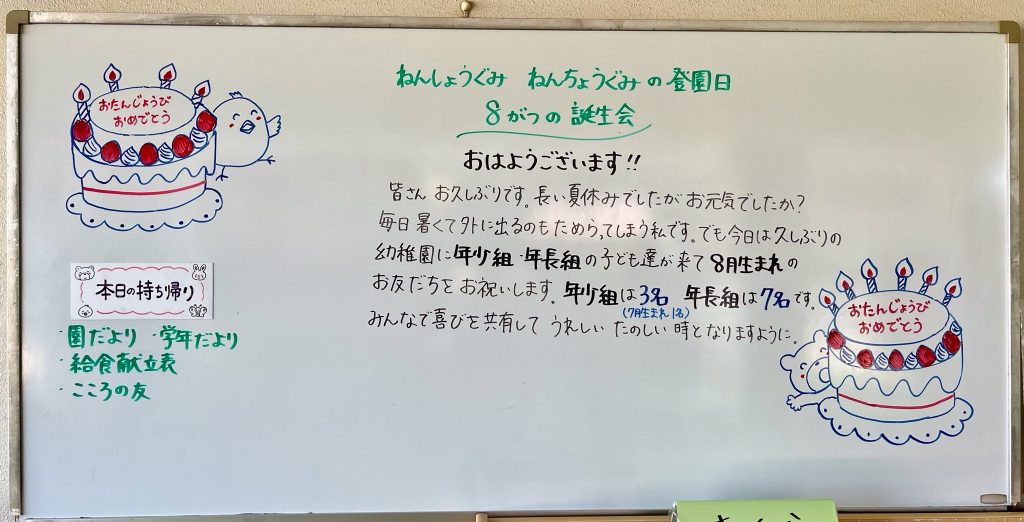 ねんしょうぐみ ねんちょうぐみの登園日
8がつの誕生会
おはようございます!!
皆さん お久しぶりです。長い夏休みでしたが お元気でしたか?
毎日 暑くて外に出るのもためらってしまう私です。でも今日は久しぶりの
幼稚園に年少組・年長組の子ども達が来て 8月生まれの
お友だちをお祝いします。年少組は3名 年長組は7名です。
(7月生まれ1名)
みんなで喜びを共有して うれしい たのしい 時となりますように。
おたんじょうび
おめでとう
本日の持ち帰り
・園だより ・学年だより
・給食献立表
・こころの友
おたんじょうび
おめでとう